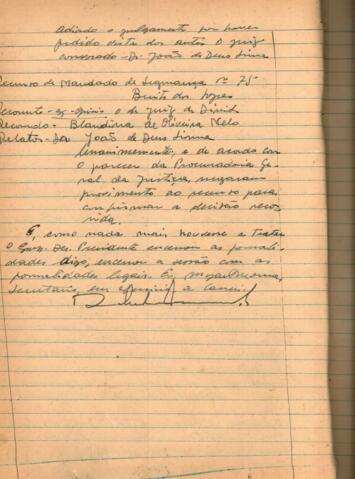 Adiado o julgamento por haver
pedido vista dos autos o juiz
convocado - Dr. João de Deus Lima
Recurso de Mandado de Segurança nº 75
Benito dos Lopes
Recorrente - ex-officio o dr. juiz de Direito
Recorrido - Blandina de Oliveira Melo
Relator - Dr. João de Deus Lima
Unanimemente, e de acordo com
o parecer da Procuradoria Ge-
ral da Justiça, negaram
provimento ao recurso para
confirmar a decisão recor-
rida.
E, como nada mais houvesse a tratar
o Exmo. Des. Presidente encerrou as formali-
dades digo, encerrou a sessão com as
formalidades legais. Eu,
Secretário, em